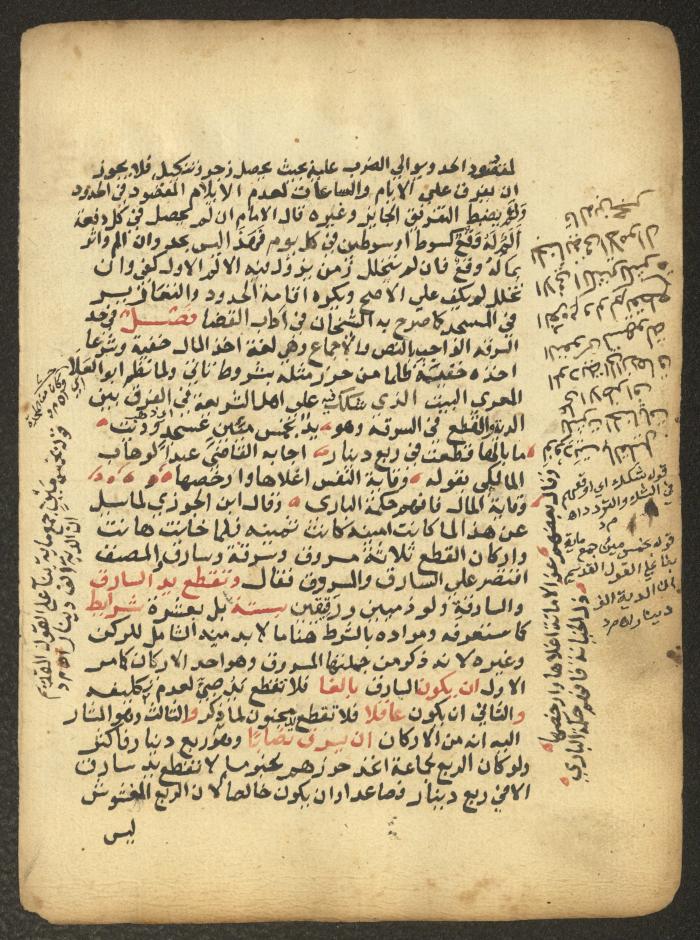 لمقصود الحد ويوالي الضرب عليه بحيث يحصل زجر وتنكيل فلا يجوز
ان يفرق علي الايام والساعات لعدم الايلام المقصود في الحدود
ولم يضبط التفريق الجايز وغيره قال الامام ان لم يحصل في كل دفعة
الم له وقع كسوط او سوطين في كل يوم فهذا ليس بحد وان الم واثر
بماله وقع فان لم يتخلل زمن يزول فيه الالم الاول كفي وان
تخلل لم يكف علي الاصح ويكره اقامة الحدود والتعازير
في المسجد كما صرح به الشيخان في اداب القضا فصل في حد
السرقه الواجب بالنص والاجماع وهي لغة اخذ المال خفية وشرعا
اخذه خفية ظلما من حرز مثله بشروط تاتي ولما نظم ابو العلا
المعري البيت الذي شكك به علي اهل الشريعة في الفرق بين
الدية والقطع في السرقه وهو يد بخمس مئين عسجد وديت
ما بالها قطعت في ربع دينار اجابه القاضي عبد الوهاب
المالكي بقوله وقاية النفس اغلاها وارخصها
وقاية المال فافهم حكمة الباري وقال ابن الجوزي لما سيل
عن هذا لما كانت امينة كانت ثمينة فلما خانت هانت
واركان القطع ثلاثة مسروق وسرقة وسارق والمصنف
اقتصر علي السارق والمسروق فقال وتقطع يد السارق
والسارقة ولو ذميين ورقيقين بستة بل بعشرة شرايط
كما ستعرفه ومراده بالشرط هنا ما لا بد منه الشامل للركن
وغيره لانه ذكر من جملتها المسروق وهو احد الاركان كما مر
الاول ان يكون السارق بالغا فلا تقطع يد صبي لعدم تكليفه
والثاني ان يكون عاقلا فلا تقطع يد مجنون لما ذكر والثالث وهو المشار
اليه انه من الاركان ان يسرق نصابا وهو ربع دينار فاكثر
ولو كان الربع لجماعة اتحد حرزهم لخبر مسلم لا تقطع يد سارق
الا في ربع دينار فصاعدا وان يكون خالصا لان الربع المغشوش
ليس
قوله شككه اي اوقعهم
في الشك والتردد اه
م د
قوله بخمس مئين جمع مايه
بنا علي القول القديم
ان الدية الف
دينار اه م د
وقال بعضهم عز الامانة اغلاها وارخصها
ذل الخيانة فافهم حكمة الباري
قوله بخمس مئين جمع مايه بنا علي القول القديم
ان الدية الف دينار اه م د